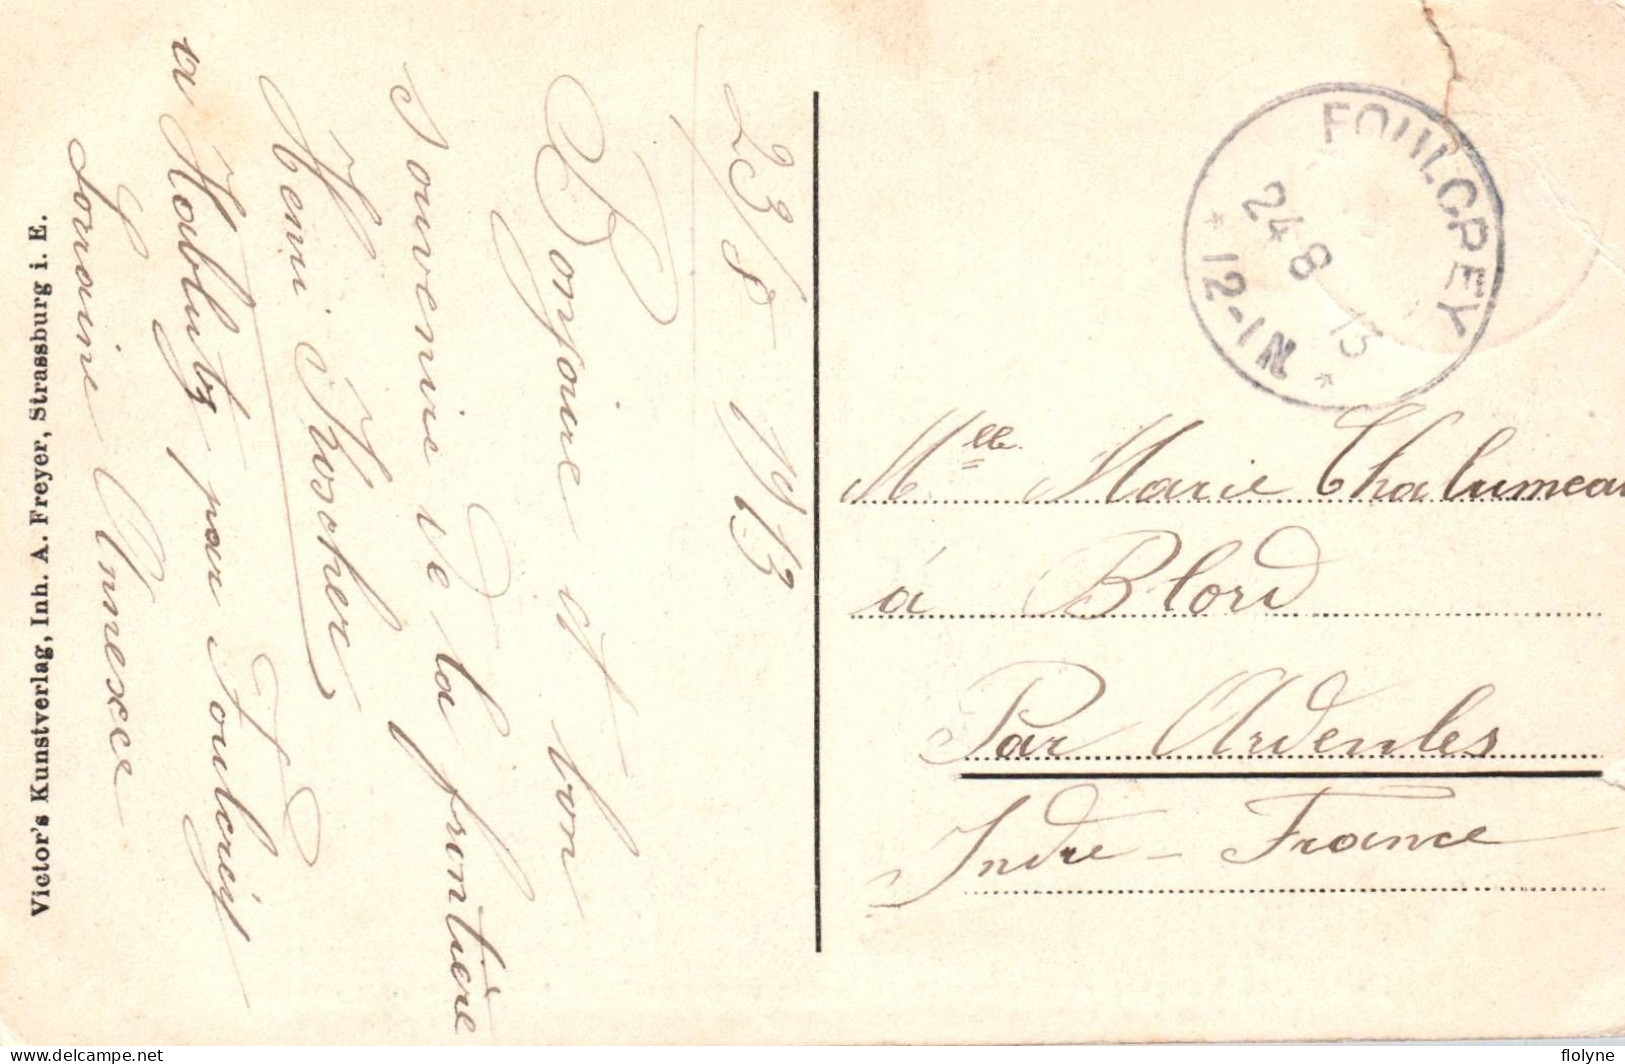 23/8 1913
Bonjour et bon
souvenire de la frontière
Henri Koscher
a Hablutz par Foulcrey
Lorraine Annexée
Victor's Kunstverlag, Inh. A. Freyer, Strassburg i. E.
FOULCREY
24 8 13
* 12-1N *
Mlle Marie Chalumeau
á Blord
Par Ardentes
Indre - France
flolyne